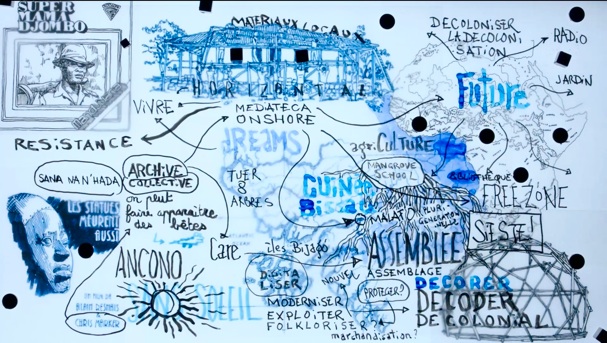 SUPER
MAMA
DJOMBO
MATERIAUX LOCAUX
HORIZONTAL
DECOLONISER
LA DECOLONI
SATION
RADIO
JARDIN
Future
VIVRE
MEDIATECA
ONSHORE
RESISTANCE
DREAMS
agri.CULTURE
MANGROVE
SCHOOL
BIBLIOTHEQUE
FREE ZONE
SANA NA N'HADA
ARCHIVE
COLLECTIVE
on peut
faire apparaitre
des bêtes
TUER
8
ARBRES
GUINÉE
BISSAU
MALAFO
PLURI
GENERATION
ASSEMBLÉE
ASSEMBLAGE
LES STATUES
MEURENT
AUSSI
UN FILM DE
ALAIN RESNAIS
CHRIS MARKER
Care
îles Bijago
ANCONO
SANS SOLEIL
DIGITA
LISER
NOUVEL
PROTEGER?
MODERNISER
EXPLOITER
FOLKLORISER?
marchandisation?
DECORER
DECODER
DECOLONIAL